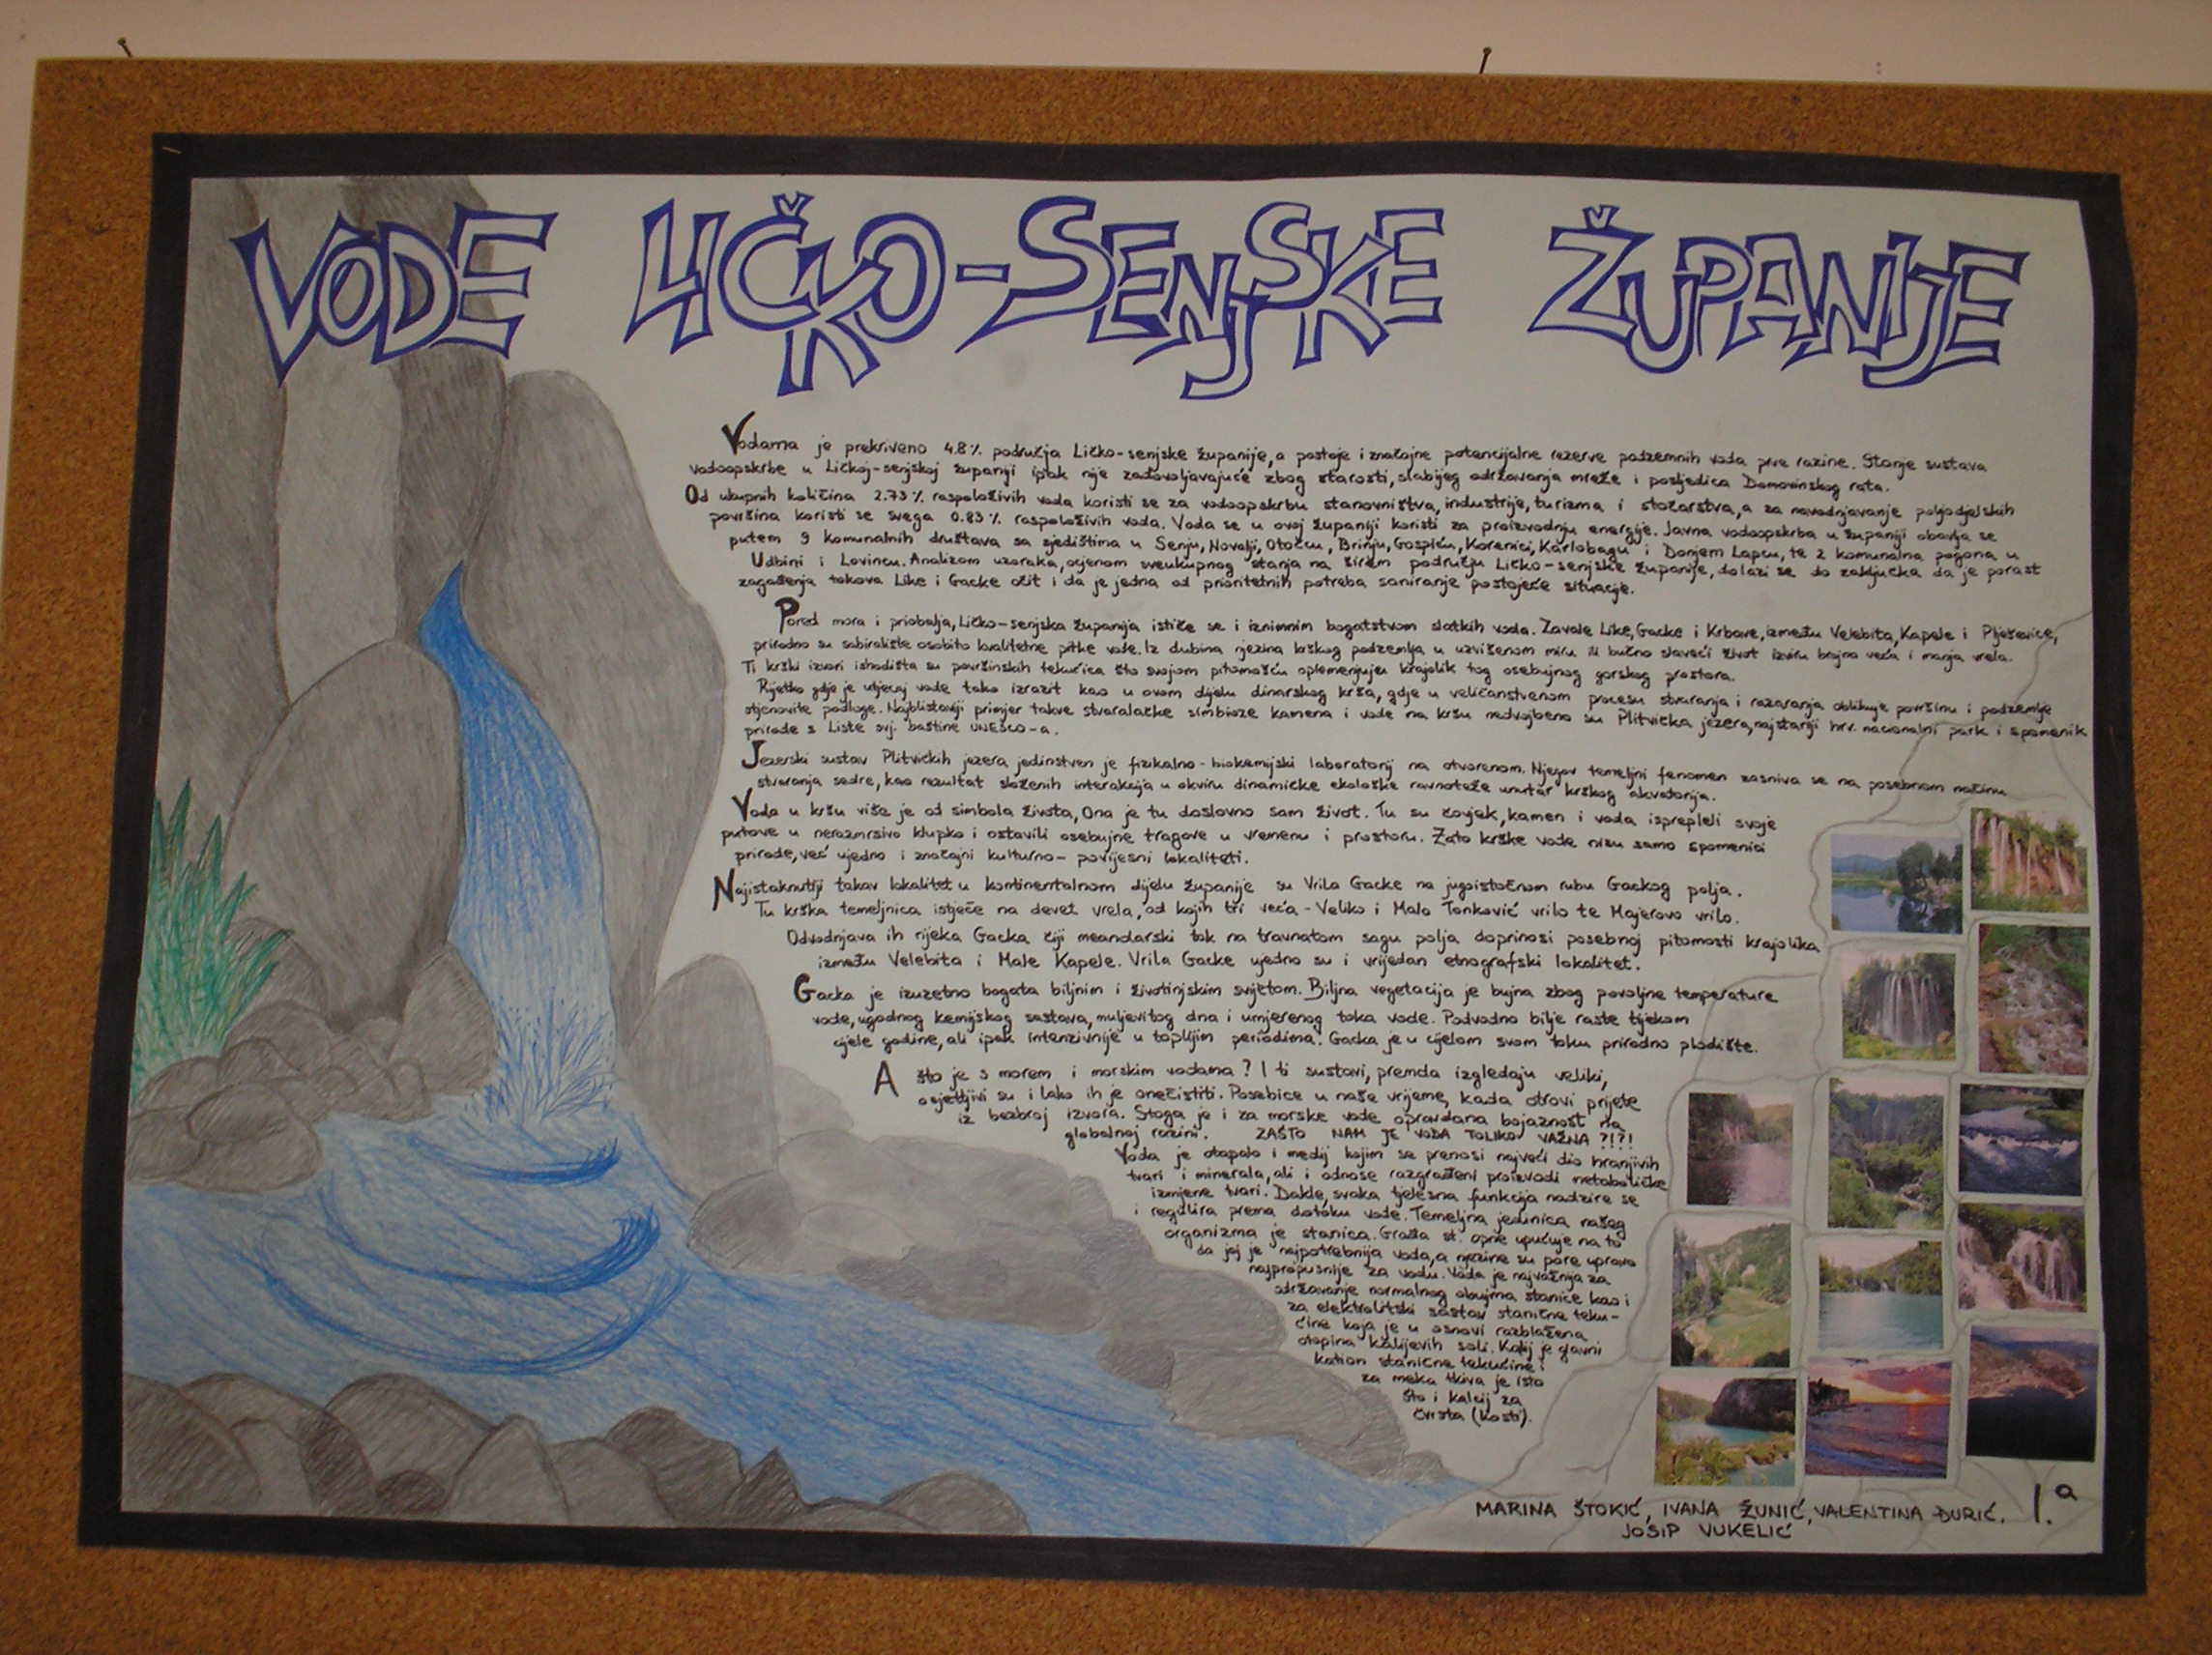 VODE LIČKO-SENJSKE ŽUPANIJE
Vodama je prekriveno 4.8% područja Ličko-senjske županije, a postoje i značajne potencijalne rezerve podzemnih voda prve razine. Stanje sustava
vodoopskrbe u Ličkoj-senjskoj županiji ipak nije zadovoljavajuće zbog starosti, slabijeg održavanja mreže i posljedica Domovinskog rata.
Od ukupnih količina 2.73% raspoloživih voda koristi se za vodoopskrbu stanovništva, industrije, turizma i stočarstva, a za navodnjavanje poljodjelskih
površina koristi se svega 0.83% raspoloživih voda. Voda se u ovoj županiji koristi za proizvodnju energije. Javna vodoopskrba u županiji obavlja se
putem 9 komunalnih društava sa sjedištima u Senju, Novalji, Otočcu, Brinju, Gospiću, Korenici, Karlobagu i Donjem Lapcu, te 2 komunalna pogona u
Udbini i Lovincu. Analizom uzoraka, ocjenom sveukupnog stanja na širem području Ličko-senjske županije, dolazi se do zaključka da je porast
zagađenja tokova Like i Gacke očit i da je jedna od prioritetnih potreba saniranje postojeće situacije.
Pored mora i priobalja, Ličko-senjska županija ističe se i iznimnim bogatstvom slatkih voda. Zavale Like, Gacke i Krbave, između Velebita, Kapele i Plješevice,
prirodno su sabiralište osobito kvalitetne pitke vode. Iz dubina njezina krškog podzemlja u uzvišenom miru ili bučno slaveći život izviru brojna veća i manja vrela.
Ti krški izvori ishodišta su površinskih tekućica što svojom pitomošću oplemenjuju krajolik tog osebujnog gorskog prostora.
Rijetko gdje je utjecaj vode tako izrazit kao u ovom dijelu dinarskog krša, gdje u veličanstvenom procesu stvaranja i razaranja oblikuje površinu i podzemlje
stjenovite podloge. Najblistaviji primjer takve stvaralačke simbioze kamena i vode na kršu nedvojbeno su Plitvička jezera, najstariji hrv. nacionalni park i spomenik
prirode s Liste svj. baštine UNESCO-a.
Jezerski sustav Plitvičkih jezera jedinstven je fizikalno-biokemijski laboratorij na otvorenom. Njegov temeljni fenomen zasniva se na posebnom načinu
stvaranja sedre, kao rezultat složenih interakcija u okviru dinamičke ekološke ravnoteže unutar krškog akvatorija.
Voda u kršu više je od simbola života, Ona je tu doslovno sam život. Tu su čovjek, kamen i voda isprepleli svoje
putove u nerazmrsivo klupko i ostavili osebujne tragove u vremenu i prostoru. Zato krške vode nisu samo spomenici
prirode, već ujedno i značajni kulturno-povijesni lokaliteti.
Najistaknutiji takav lokalitet u kontinentalnom dijelu županije su Vrila Gacke na jugoistočnom rubu Gackog polja.
Tu krška temeljnica istječe na devet vrela, od kojih tri veća - Veliko i Malo Tonković vrilo te Majerovo vrilo.
Odvodnjava ih rijeka Gacka čiji meandarski tok na travnatom sagu polja doprinosi posebnoj pitomosti krajolika
između Velebita i Male Kapele. Vrila Gacke ujedno su i vrijedan etnografski lokalitet.
Gacka je izuzetno bogata biljnim i životinjskim svijetom. Biljna vegetacija je bujna zbog povoljne temperature
vode, ugodnog kemijskog sastava, muljevitog dna i umjerenog toka vode. Podvodno bilje raste tijekom
cijele godine, ali ipak intenzivnije u toplijim periodima. Gacka je u cijelom svom toku prirodno plodište.
A što je s morem i morskim vodama? I ti sustavi, premda izgledaju veliki,
osjetljivi su i lako ih je onečistiti. Posebice u naše vrijeme, kada otrovi prijete
iz bezbroj izvora. Stoga je i za morske vode opravdana bojaznost na
globalnoj razini. ZAŠTO NAM JE VODA TOLIKO VAŽNA ?!?!
Voda je otapalo i medij kojim se prenosi najveći dio hranjivih
tvari i minerala, ali i odnose razgrađeni proizvodi metaboličke
izmjene tvari. Dakle, svaka tjelesna funkcija nadzire se
i regulira prema dotoku vode. Temeljna jedinica našeg
organizma je stanica. Građa st. opne upućuje na to
da joj je najpotrebnija voda, a njezine su pore upravo
najpropusnije za vodu. Voda je najvažnija za
održavanje normalnog obujma stanice kao i
za elektrolitski sastav stanične teku-
ćine koja je u osnovi razblažena
otopina kalijevih soli. Kalij je glavni
kation stanične tekućine i
za meka tkiva je isto
što i kalcij za
čvrsta (kosti).
MARINA ŠTOKIĆ, IVANA ŽUNIĆ, VALENTINA ĐURIĆ, 1.a
JOSIP VUKELIĆ